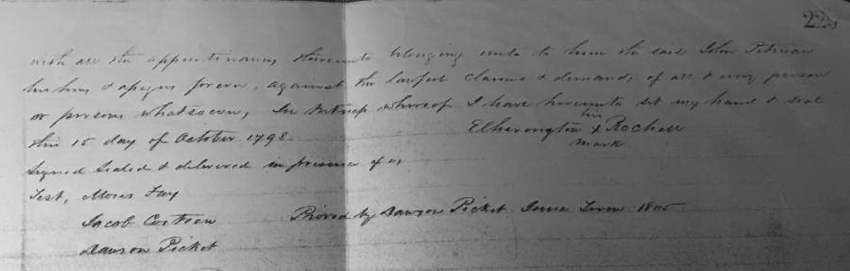 22
with all the appurtinances thereunto belonging unto to him the said John Pitman
his heirs & assigns forever, against the lawful claims & demands, of all & every person
or persons whatsoever, In witness whereof I have hereunto set my hand & seal
this 15 day of October 1798
his
Etherington x Rochell
mark
Signed Sealed & delivered in presence of us
Test, Moses
Jacob
Dawson Picket
Proved by Dawson Picket June Term